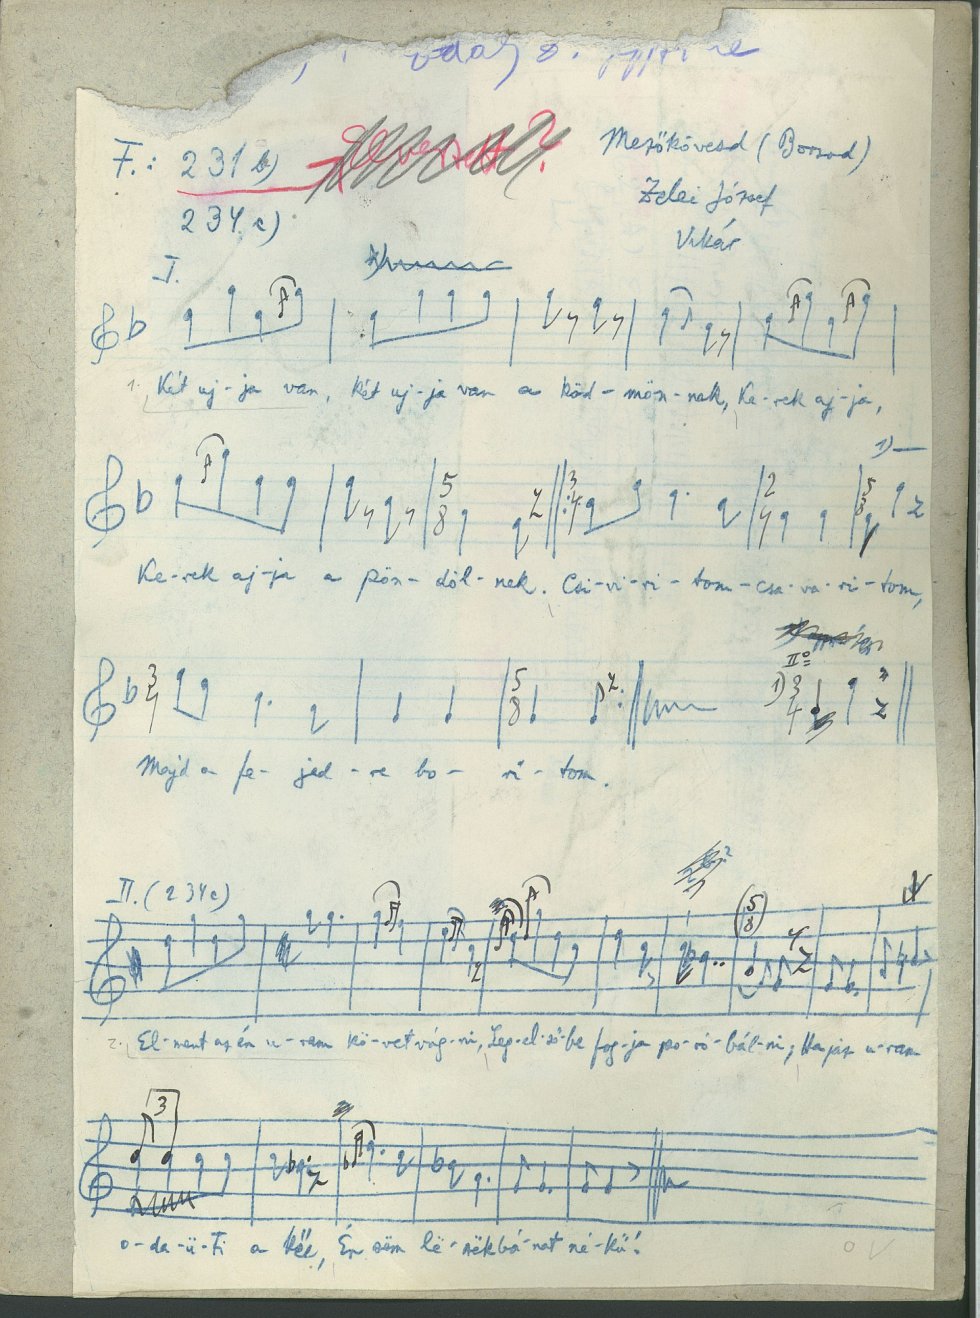 F.: 231 b)
234 c)
Mezőkövesd (Borsod)
Zelei József
Vikár
I.
1. Két uj-ja van, két uj-ja van a köd-mön-nek, Ke-rek aj-ja,
1)
5 8 3 4 2 4 5 8
Ke-rek aj-ja a pön-döl-nek. Csi-vi-ri-tom-csa-va-ri-tom,
IIº
1) 3 4
3 4 5 8
Majd a fe-jed-re bo-rí-tom.
II. (234c)
(5 8)
2. El-ment az én u-ram kö-vet vág-ni, Leg-el-ső-be fog-ja po-ró-bál-ni; Ha jáz u-ram
3
o-da-ü-ti a Én sëm lë-szëk bá-nat né-kű!